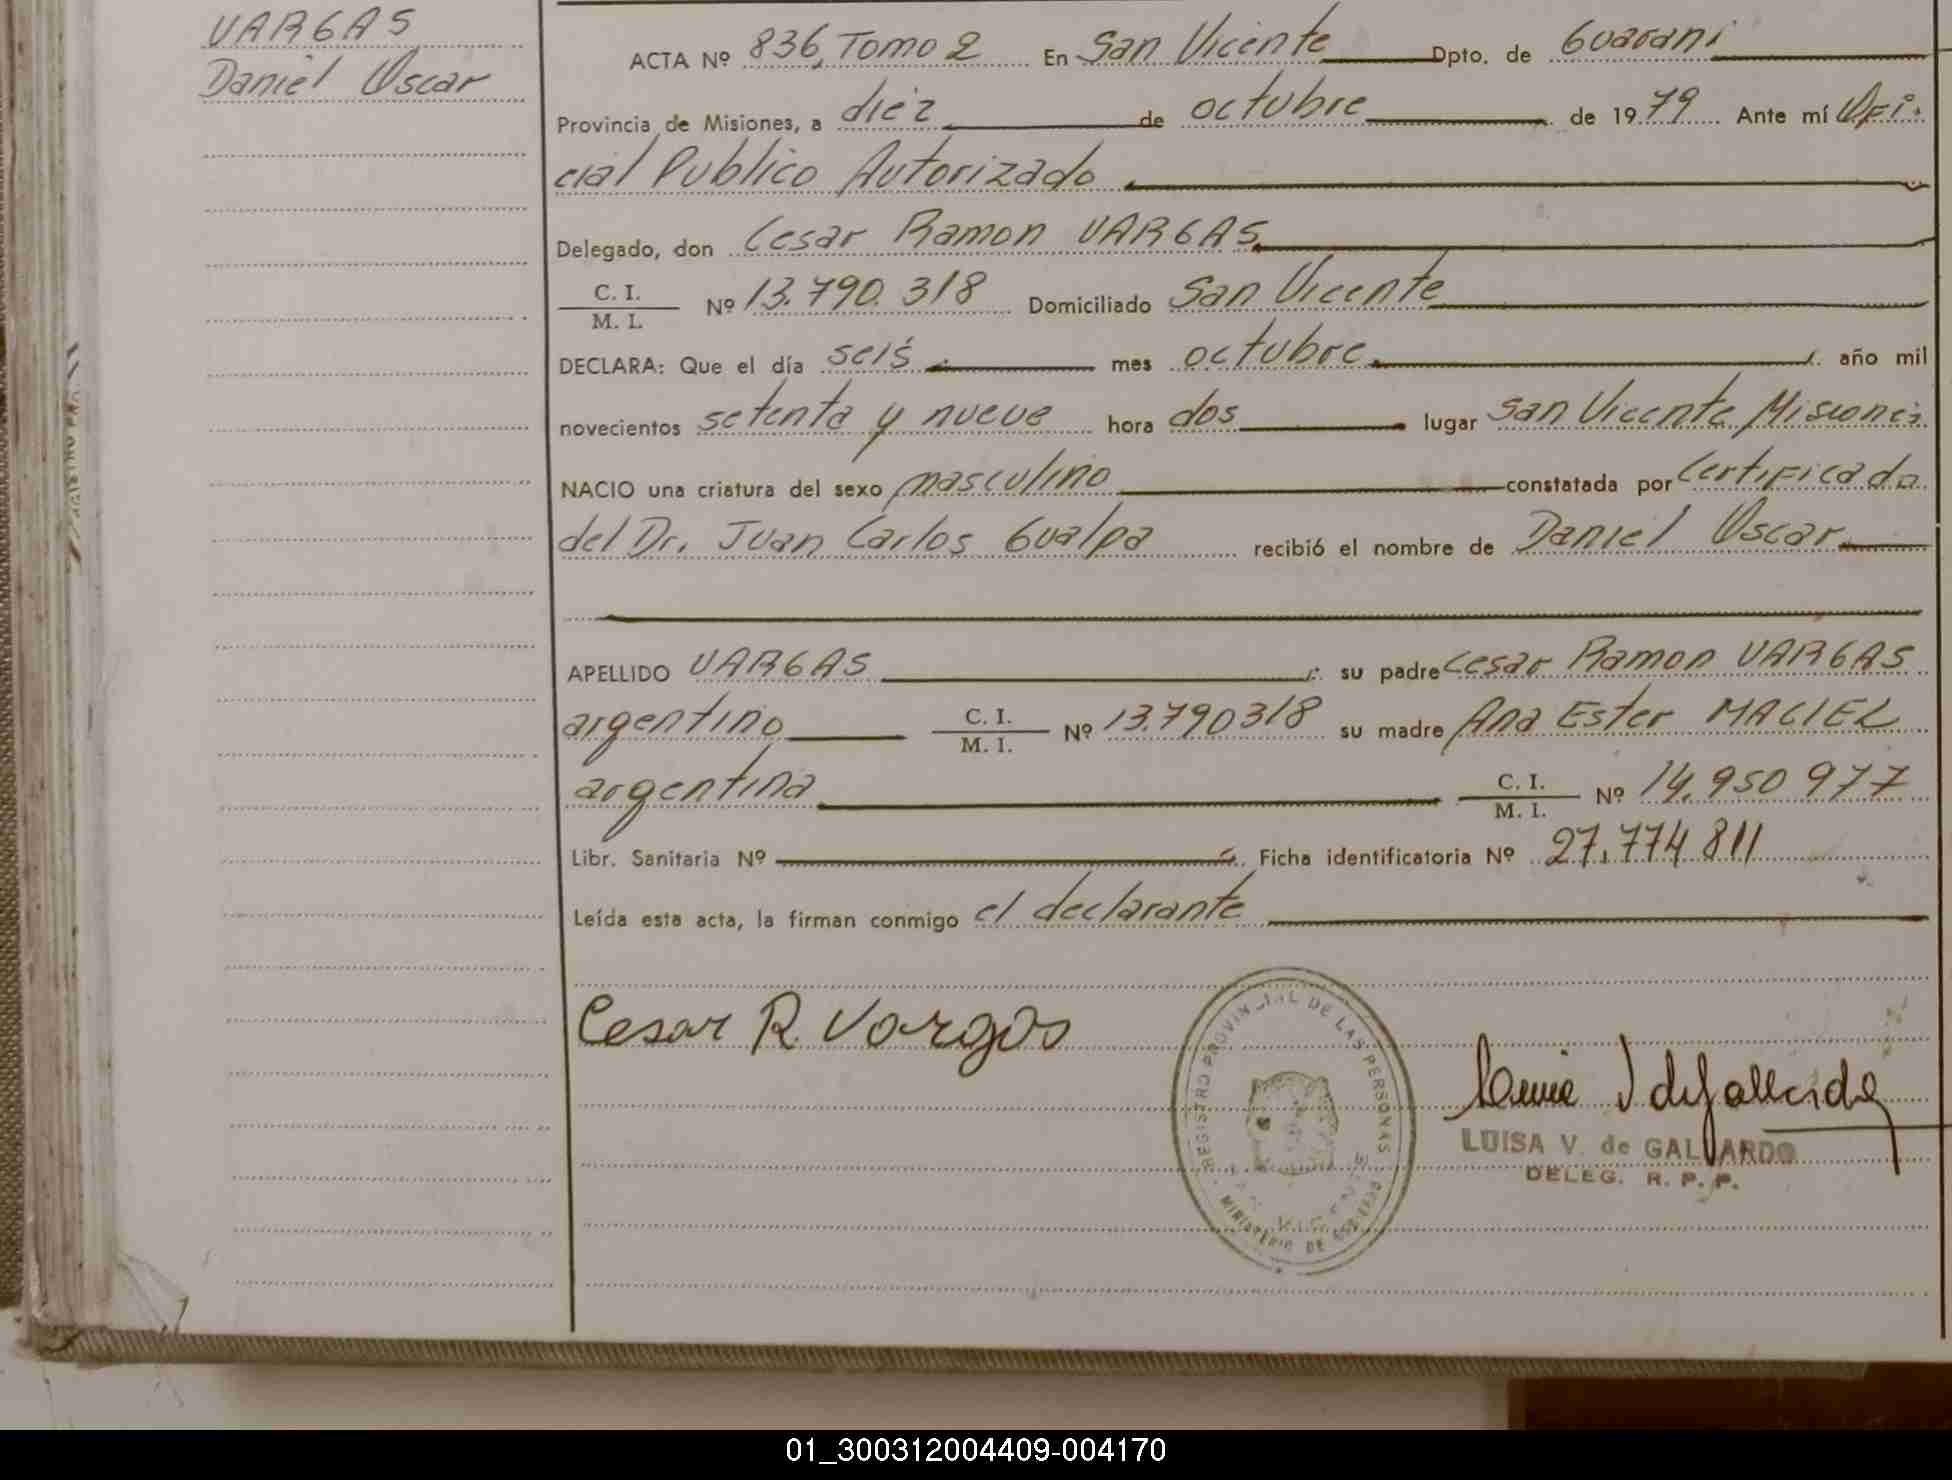 VARGAS
Daniel Oscar
ACTA Nº 836, Tomo 2 En San Vicente Dpto. de Guarani
Provincia de Misiones, a diez de octubre de 1979 Ante mí Ofi-
cial Publico Autorizado
Delegado, don Cesar Ramon VARGAS
C. I.
M. I. Nº 13.790.318 Domiciliado San Vicente
DECLARA: Que el día seis mes octubre año mil
novecientos setenta y nueve hora dos lugar San Vicente Misiones
NACIO una criatura del sexo masculino constatada por Certificado
del Dr. Juan Carlos Gualpa recibió el nombre de Daniel Oscar
APELLIDO VARGAS su padre Cesar Ramon VARGAS
argentino C. I.
M. I. Nº 13.790318 su madre Ana Ester MACIEL
argentina C. I.
M. I. Nº 14.950977
Libr. Sanitaria Nº Ficha identificatoria Nº 27.774811
Leída esta acta, la firman conmigo el declarante
Cesar R. Vargas
REGISTRO PROVINCIAL DE LAS PERSONAS
SAN VICENTE
MINISTERIO DE
LUISA V. de GALLARDO
DELEG. R. P. P.
01_300312004409-004170